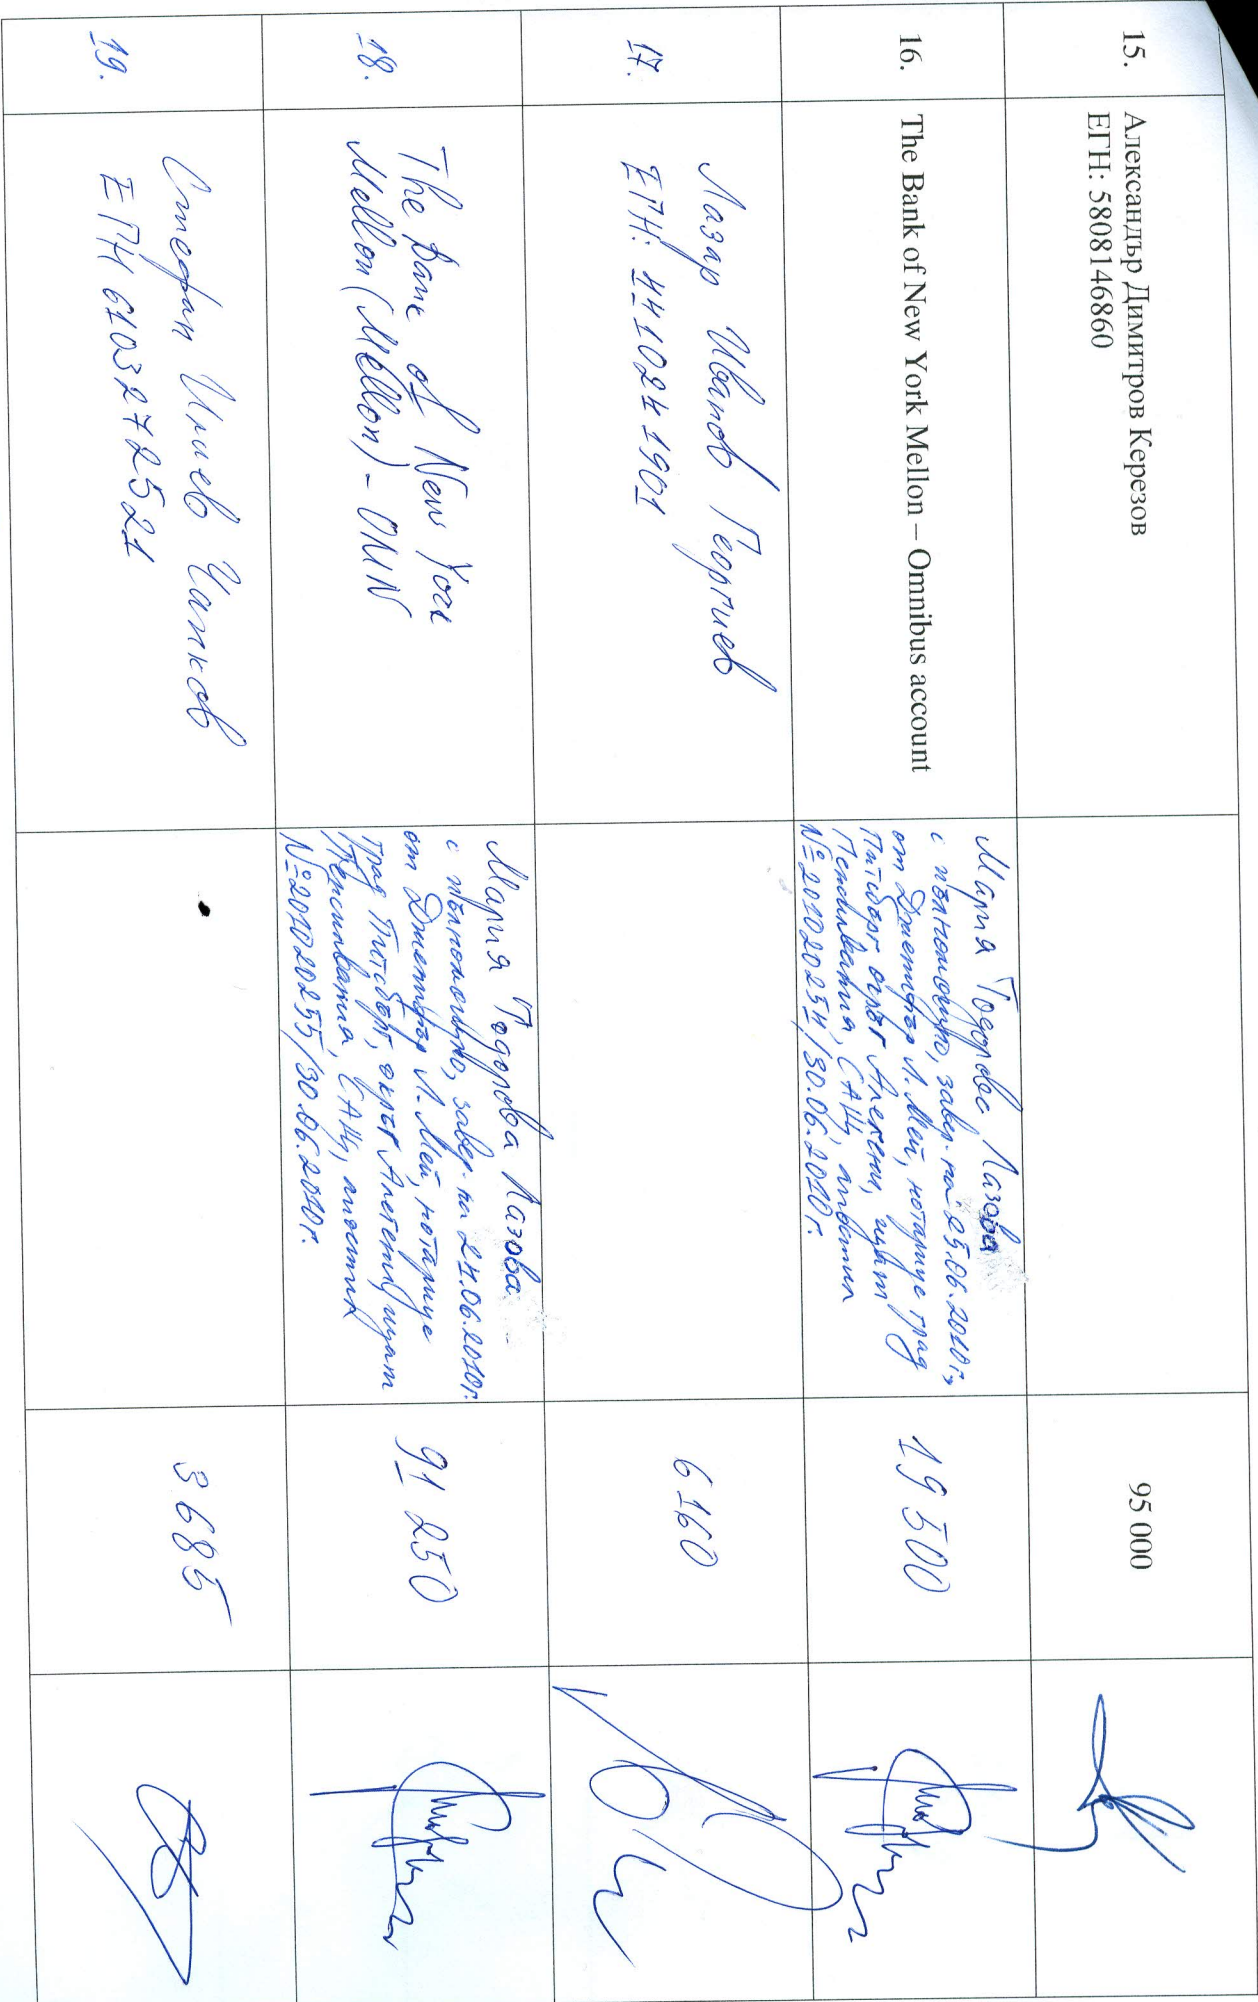 15.
Александър Димитров Керезов
ЕГН: 5808146860
95 000
16.
The Bank of New York Mellon – Omnibus account
Мария Тодорова Лазова
с пълномощно, завер. на 25.06.2010г.,
от Дженифър Л. Мей, нотариус град
Питсбърг окръг Алегени, щат
Пенсилвания, САЩ, апостил
№ 201020254/30.06.2010г.
19 500
17.
Лазар Иванов Георгиев
ЕГН: 4410241901
6160
18.
The Bank of New York
Mellon (Mellon) - OMN
Мария Тодорова Лазова
с пълномощно, завер. на 24.06.2010г.
от Дженифър Л. Мей, нотариус
град Питсбърг, окръг Алегени, щат
Пенсилвания, САЩ, апостил
№ 201020255/30.06.2010г.
91 250
19.
Стефан Илиев
ЕГН 6103272521
3 685